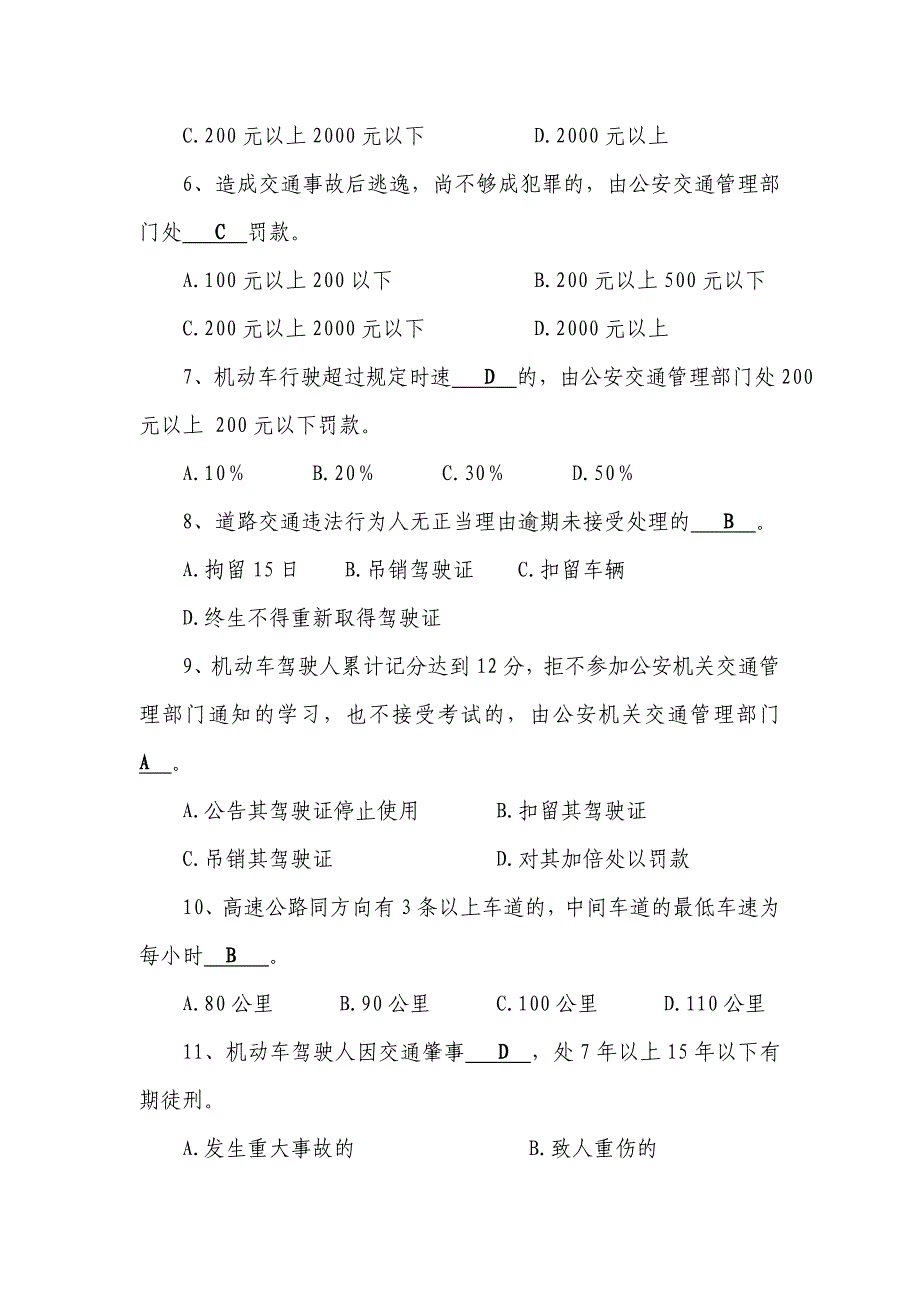 C.200 元以上 2000 元以下 D.2000 元以上
6、造成交通事故后逃逸，尚不够成犯罪的，由公安交通管理部
门处 C 罚款。
A.100 元以上 200 以下 B.200 元以上 500 元以下
C.200 元以上 2000 元以下 D.2000 元以上
7、机动车行驶超过规定时速 D 的，由公安交通管理部门处 200
元以上 200 元以下罚款。
A.10% B.20% C.30% D.50%
8、道路交通违法行为人无正当理由逾期未接受处理的 B 。
A.拘留 15 日 B.吊销驾驶证 C.扣留车辆
D.终生不得重新取得驾驶证
9、机动车驾驶人累计记分达到 12 分，拒不参加公安机关交通管
理部门通知的学习，也不接受考试的，由公安机关交通管理部门
A 。
A.公告其驾驶证停止使用 B.扣留其驾驶证
C.吊销其驾驶证 D.对其加倍处以罚款
10、高速公路同方向有 3 条以上车道的，中间车道的最低车速为
每小时 B 。
A.80 公里 B.90 公里 C.100 公里 D.110 公里
11、机动车驾驶人因交通肇事 D ，处 7 年以上 15 年以下有
期徒刑。
A.发生重大事故的 B.致人重伤的